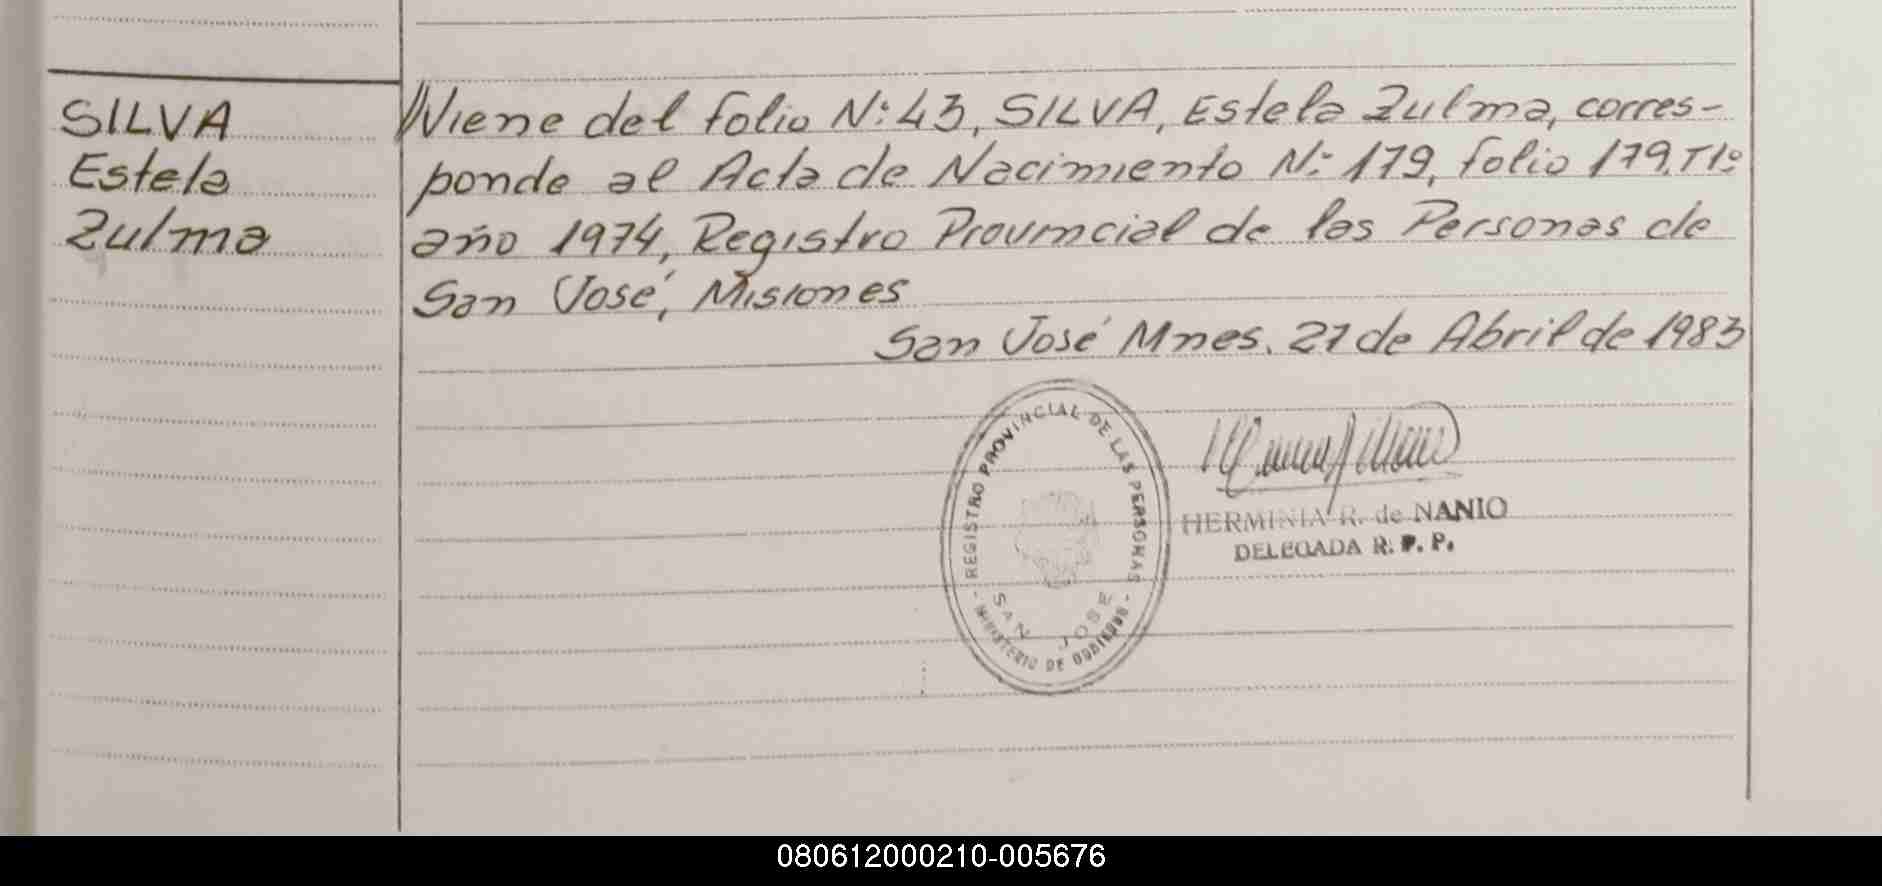 SILVA
Estela
Zulma
//Viene del folio N: 43, SILVA, Estela Zulma, corres-
ponde al Acta de Nacimiento N: 179, folio 179, T1º
año 1974, Registro Provincial de las Personas de
San José, Misiones
San José Mnes. 27 de Abril de 1983
REGISTRO PROVINCIAL DE LAS PERSONAS
SAN JOSE
- MINISTERIO DE GOBIERNO -
HERMINIA R. de NANIO
DELEGADA R. P. P.
080612000210-005676